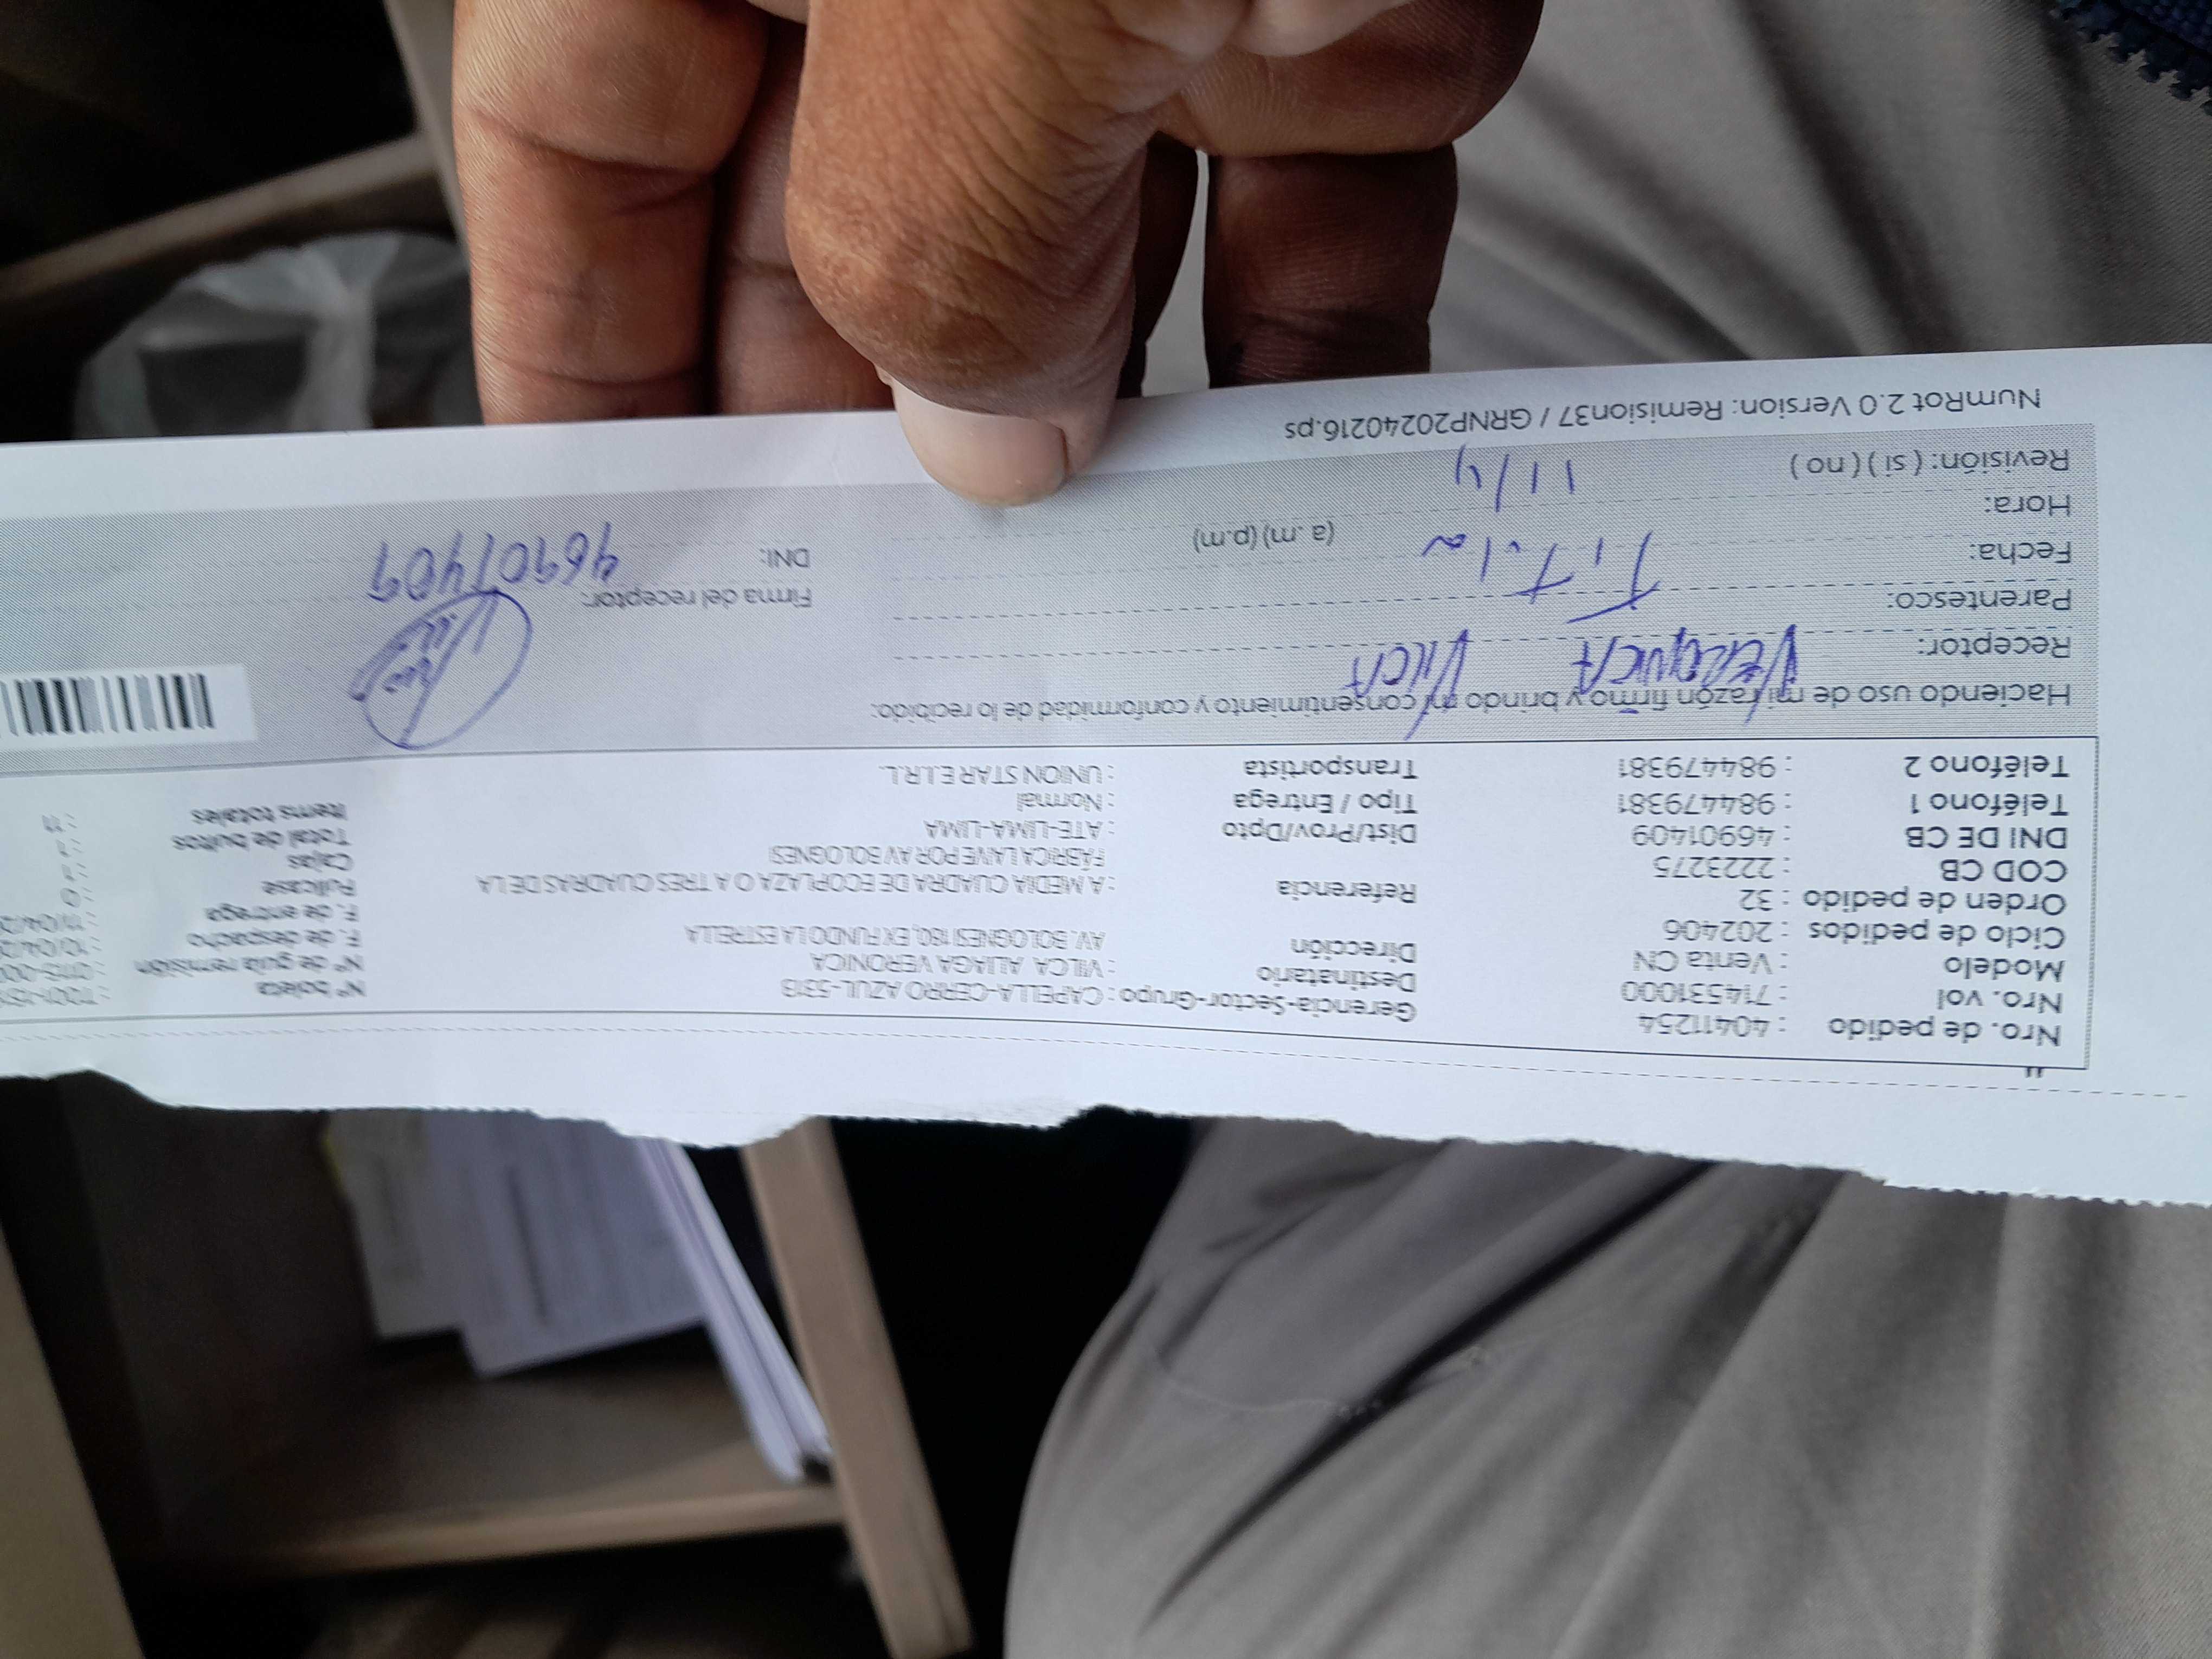 Nro. de pedido : 40411254
Nro. vol : 714531000
Modelo : Venta CN
Ciclo de pedidos : 202406
Orden de pedido : 32
COD CB : 2223275
DNI DE CB : 46901409
Teléfono 1 : 984479381
Teléfono 2 : 984479381
Gerencia-Sector-Grupo : CAPELLA-CERRO AZUL-5313
Destinatario : VILCA ALIAGA VERONICA
Dirección AV. BOLOGNESI 180, EX FUNDO LA ESTRELLA
Referencia : A MEDIA CUADRA DE ECOPLAZA O A TRES CUADRAS DE LA
FÁBRICA LAIVE POR AV BOLOGNESI
Dist/Prov/Dpto : ATE-LIMA-LIMA
Tipo / Entrega : Normal
Transportista : UNION STAR E.I.R.L.
Nº boleta
Nº de guía remisión
F. de despacho : 10/04/2
F. de entrega : 11/04/2
Fullcase : 0
Cajas : 1
Total de bultos : 1
Items totales : 11
Haciendo uso de mi razón firmo y brindo mi consentimiento y conformidad de lo recibido:
Receptor: VERONICA VILCA
Parentesco: Titular
Fecha: 11/4
Hora: (a .m) (p.m)
Revisión: ( si ) ( no )
Firma del receptor:
DNI: 46901409
NumRot 2.0 Version: Remision37 / GRNP20240216.ps